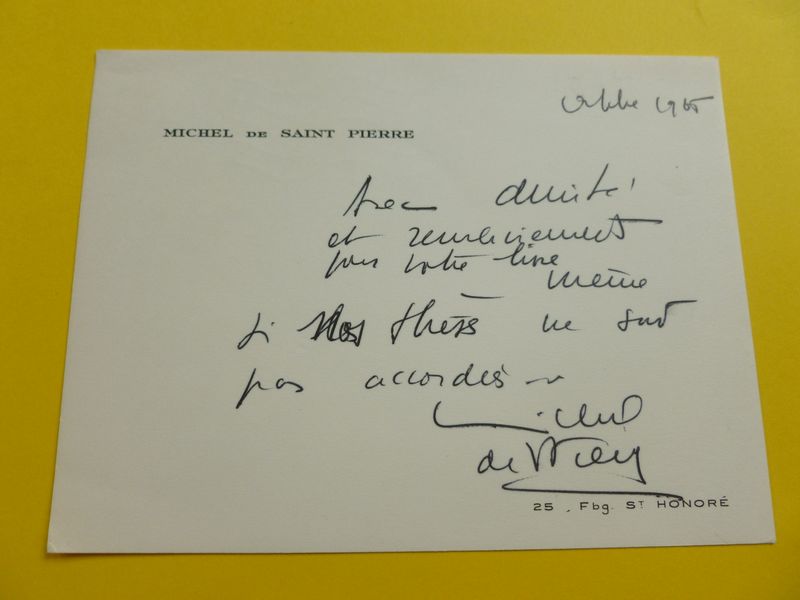 octobre 1965
MICHEL DE SAINT PIERRE
Avec amitié
et remerciements
pour votre livre
même
si nos thèses ne sont
pas accordées
Michel
de St Pierre
25, Fbg. ST HONORÉ